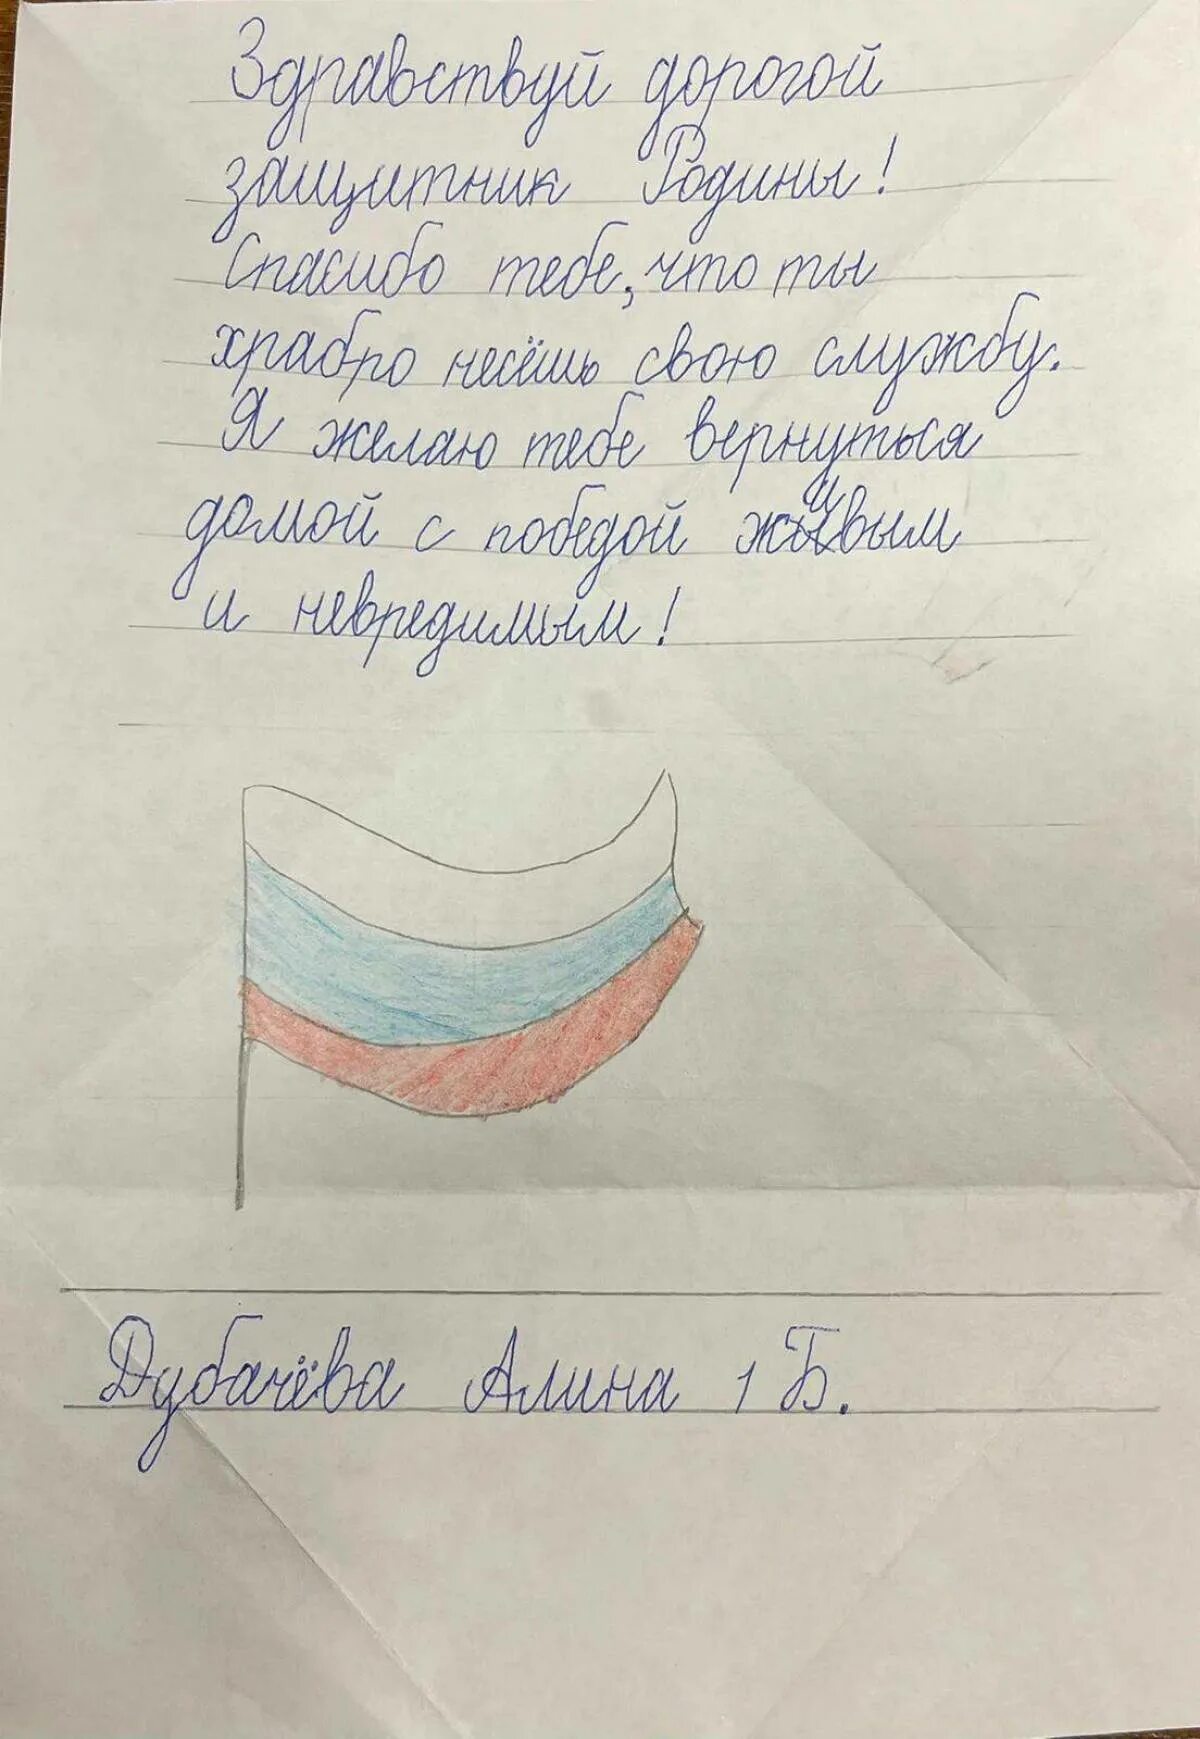 Здравствуй дорогой
защитник Родины!
Спасибо тебе, что ты
храбро несёшь свою службу.
Я желаю тебе вернуться
домой с победой живым
и невредимым!
Дубачёва Алина 1 Б.